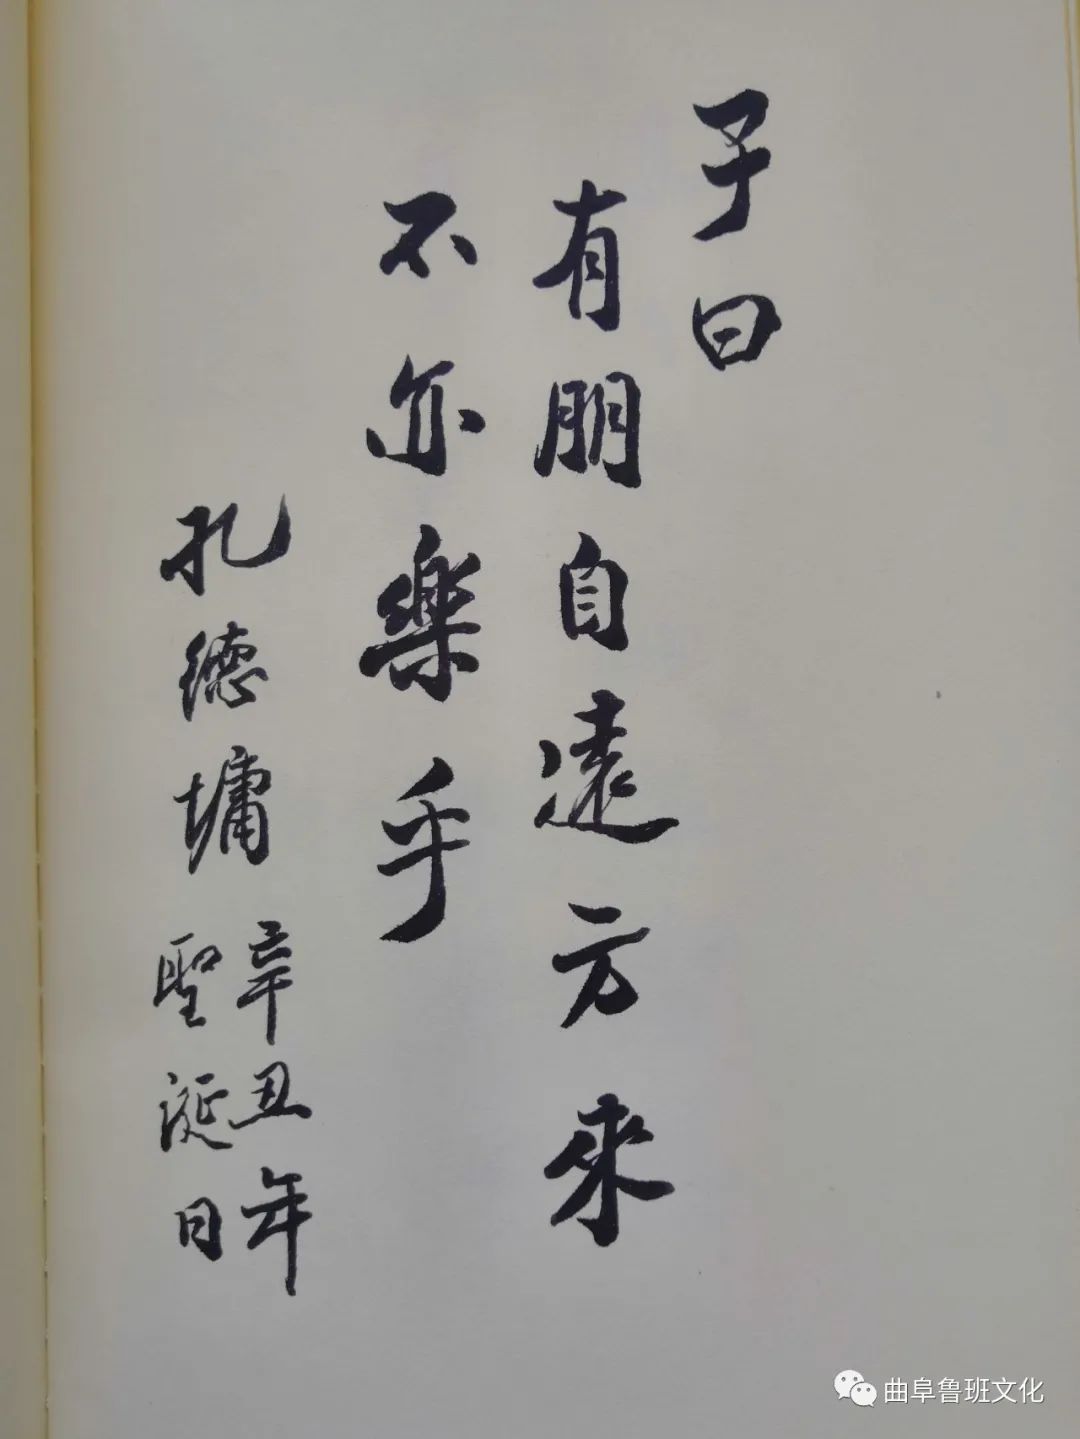 子曰
有朋自遠方來
不亦樂乎
孔德墉
辛丑年
聖誕日
曲阜鲁班文化